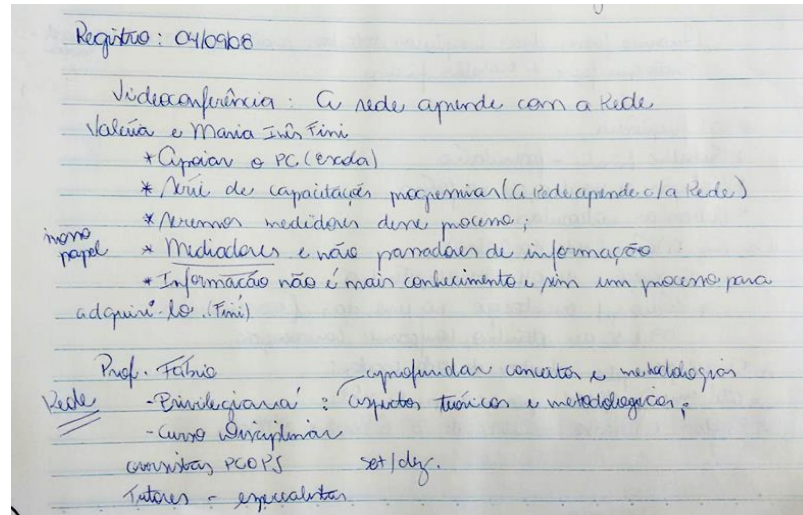 Registro: 04/09/08
Videoconferência: A rede aprende com a Rede
Valéria e Maria Inês Fini
* Apoiar o PC (escola)
* Série de capacitações progressivas (A Rede aprende c/ a Rede)
* Seremos medidores desse processo;
nosso papel * Mediadores e não passadores de informação
* Informação não é mais conhecimento e sim um processo para
adquiri-lo. (Fini)
Prof. Fábio aprofundar conceitos e metodologias
Rede - Privilegiará: aspectos teóricos e metodologicos;
- Curso Disciplinar
cursistas PCOPS set/dez.
Tutores - especialistas